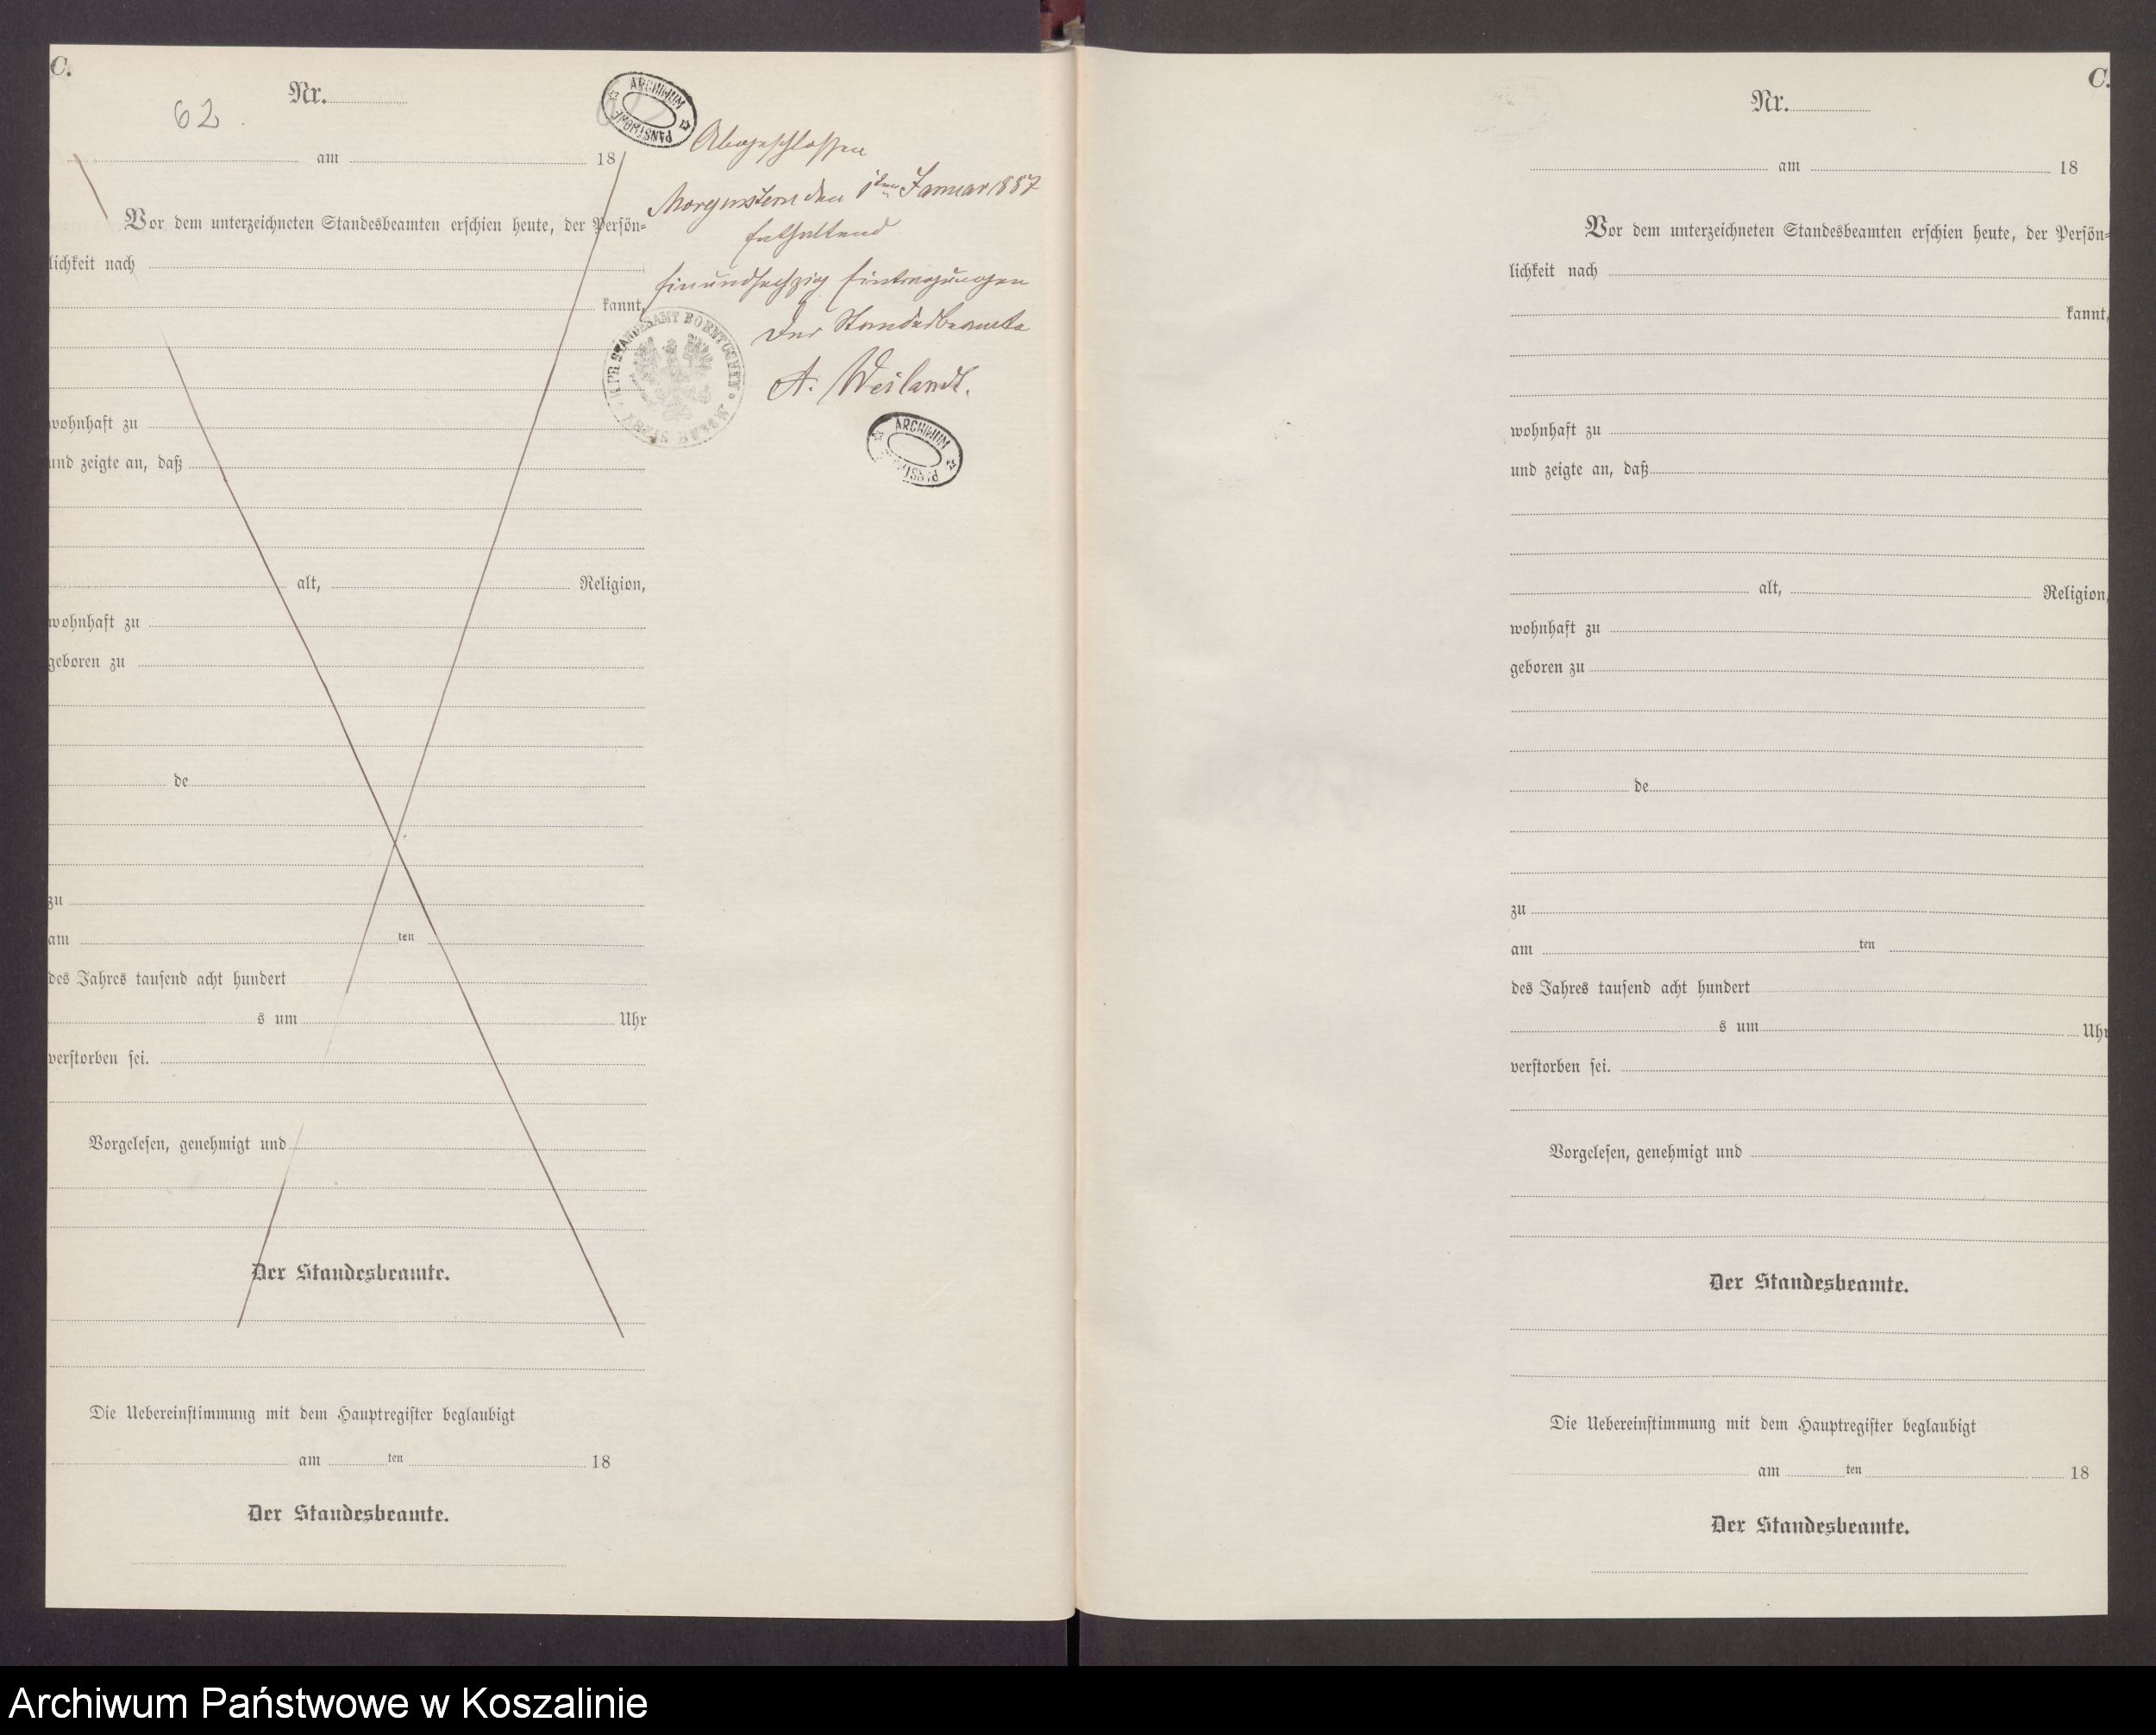 C.
Nr.
62
am 18
Vor dem unterzeichneten Standesbeamten erschien heute, der Persön=
lichkeit nach
kannt,
wohnhaft zu
und zeigte an, daß
alt, Religion,
wohnhaft zu
geboren zu
de
zu
am ten
des Jahres tausend acht hundert
s um Uhr
verstorben sei.
Vorgelesen, genehmigt und
Der Standesbeamte.
Die Uebereinstimmung mit dem Hauptregister beglaubigt
am ten 18
Der Standesbeamte.
ARCHIWUM PAŃSTWOWE
Abgeschlossen
Morgenstern den 1ten Januar 1887
Enthaltend
Einundsechzig Eintragungen
Der Standesbeamte
A. Weilandt.
K. PR. STANDESAMT BORNTUCHEN
KREIS BÜTOW
ARCHIWUM PAŃSTWOWE
C.
Nr.
am 18
Vor dem unterzeichneten Standesbeamten erschien heute, der Persön=
lichkeit nach
kannt,
wohnhaft zu
und zeigte an, daß
alt, Religion,
wohnhaft zu
geboren zu
de
zu
am ten
des Jahres tausend acht hundert
s um Uhr
verstorben sei.
Vorgelesen, genehmigt und
Der Standesbeamte.
Die Uebereinstimmung mit dem Hauptregister beglaubigt
am ten 18
Der Standesbeamte.
Archiwum Państwowe w Koszalinie